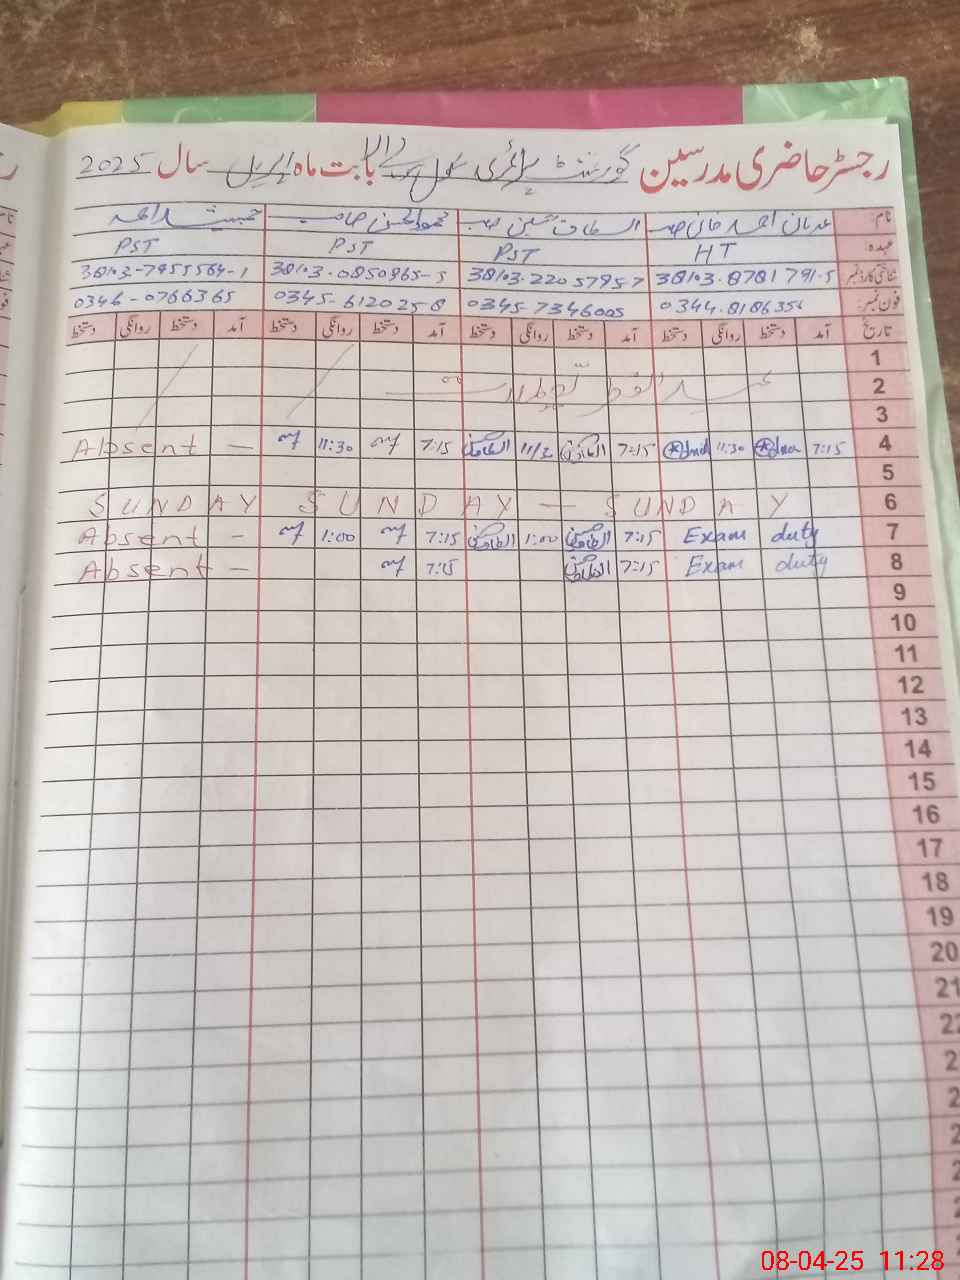 رجسٹر حاضری مدرسین گورنمنٹ پرائمری سکول بابت ماہ اپریل سال 2025
نام: عدنان احمد خان صاحب الطاف حسین صاحب محمود الحسن صاحب جمشید احمد
عہدہ: HT PST PST PST
شناختی کارڈ نمبر 38103-8781791-5 38103-2205795-7 38103-0850965-5 38103-7955564-1
فون نمبر: 0344-8186356 0345-7346005 0345-6120258 0346-0766365
تاریخ آمد دستخط روانگی دستخط آمد دستخط روانگی دستخط آمد دستخط روانگی دستخط آمد دستخط روانگی دستخط
1
2 عید الفطر تعطیلات
3
4 7:15 11:30 7:15 11/3 7:15 11:30 Absent —
5
6 SUNDAY SUNDAY — SUNDAY
7 Exam duty 7:15 1:00 7:15 1:00 Absent —
8 Exam duty 7:15 7:15 Absent —
9
10
11
12
13
14
15
16
17
18
19
20
21
22
08-04-25 11:28